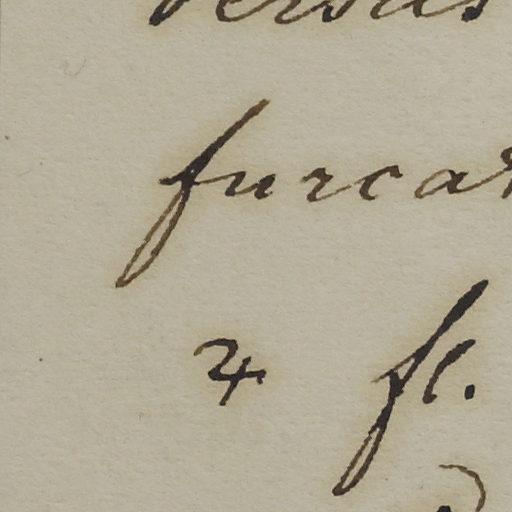 furcat
♃ fl.